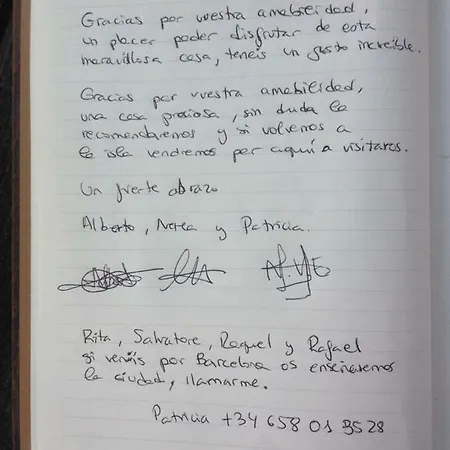 Gracias por vuestra amabilidad,
un placer poder disfrutar de esta
maravillosa casa, teneis un gusto increíble.
Gracias por vuestra amabilidad,
una casa preciosa, sin duda la
recomendaremos y si volvemos a
la isla vendremos por aquí a visitaros.
Un fuerte abrazo
Alberto, Nerea y Patricia.
Rita, Salvatore, Raquel y Rafael
si venís por Barcelona os enseñaremos
la ciudad, llamarme.
Patricia +34 658 01 35 28